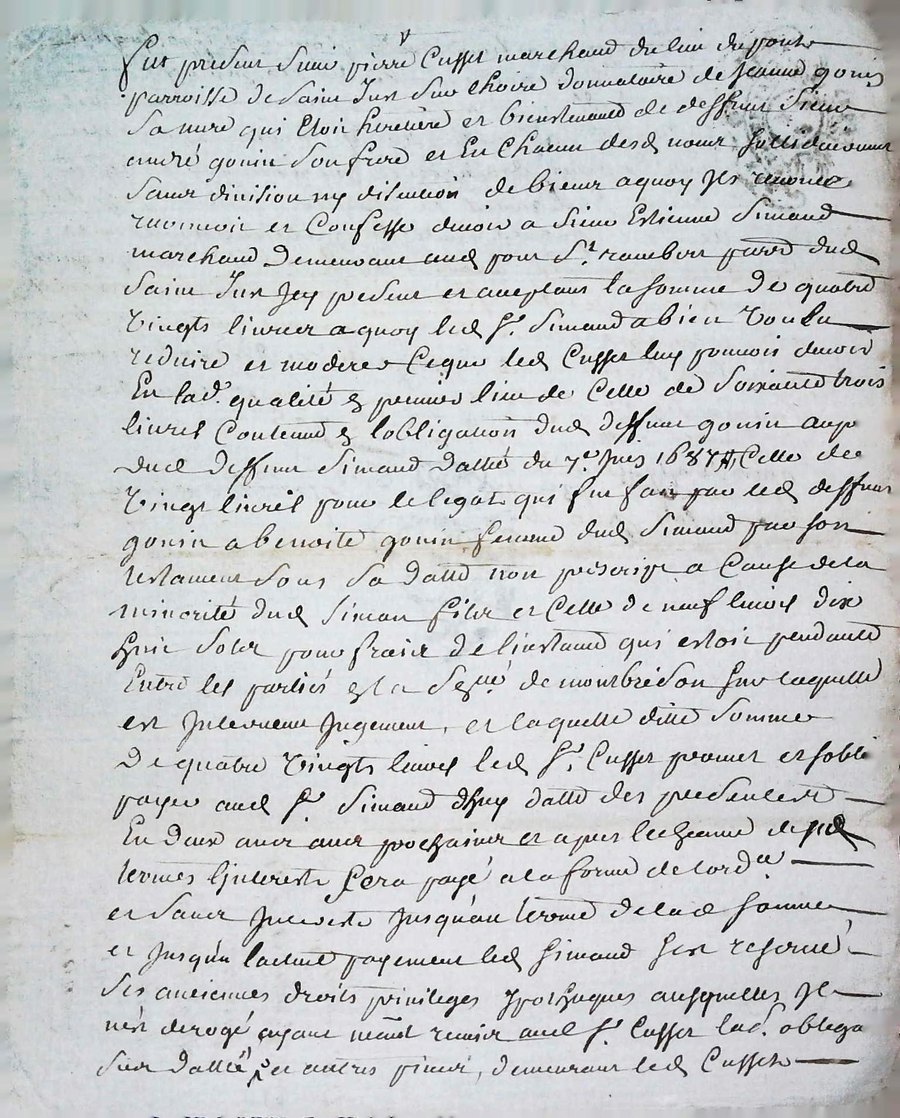 Fut present Sieur pierre Cusset marchand du lieu du pont
parroisse de Saint Just Sur Loire donnataire de Jeanne gonin
Sa mere qui Etoit heretiere et bientenante de deffunt Sieur
andré gonin Son frere et En Chacun desd noms Sollidairement
Sans division ny discution de biens a quoy
et Confesse devoir a Sieur Estienne Simand
marchand Demeurant aud pont St. rambert parr. dud
Saint Just Icy present et aceptant la somme De quatre
Vingts livres a quoy led Sr. Simand a bien Voulu
reduire et moderer Ceque led Cusset luy pouvoit devoir
En lad. qualité premier lieu de Celle de Soixante trois
livres Contenue l'obligation dud deffunt gonin au p
dud deffunt Simand datté du 7e. 1687 Celle de
Vingt livres pour le legat qui fut fait par led deffunt
gonin a benoite gonin femme dud Simand par Son
testament Sous Sa Datte non prescript a Cause de la
minorité dud Simand fils et Celle De neuf livres dix
huit Sols pour frais de l'instance qui estoit pendante
Entre les parties de montbrison Sur laquelle
est Intervenu Jugement, et laquelle ditte Somme
De quatre Vingts livres led Sr. Cusset promet et soblige
payer aud Sr. Simand dhuy datte des presentes
En deux ans prochains et apres lecheance desd
termes l'interest Sera payé a la forme de lord.ce
et Sans Interest Jusqu'au terme de lad Somme
et Jusqu'a lactuel payement led Simand Sest reservé
Ses anciennes droits privileges Ypotheques ausquelles Jl
n'est derogé ayant remis aud Sr. Cusset lad. obliga
Sus dattée et autres pieces, demeurant led Cusset